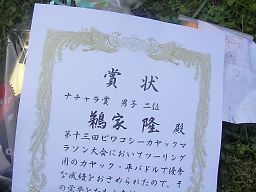 賞状
ナチャラ賞 男子 二位
鵜家 隆 殿
第十三回ビワコシーカヤックマ
ラソン大会においてツーリング
用のカヤック・平パドルで優秀
な成績をおさめられたので、そ